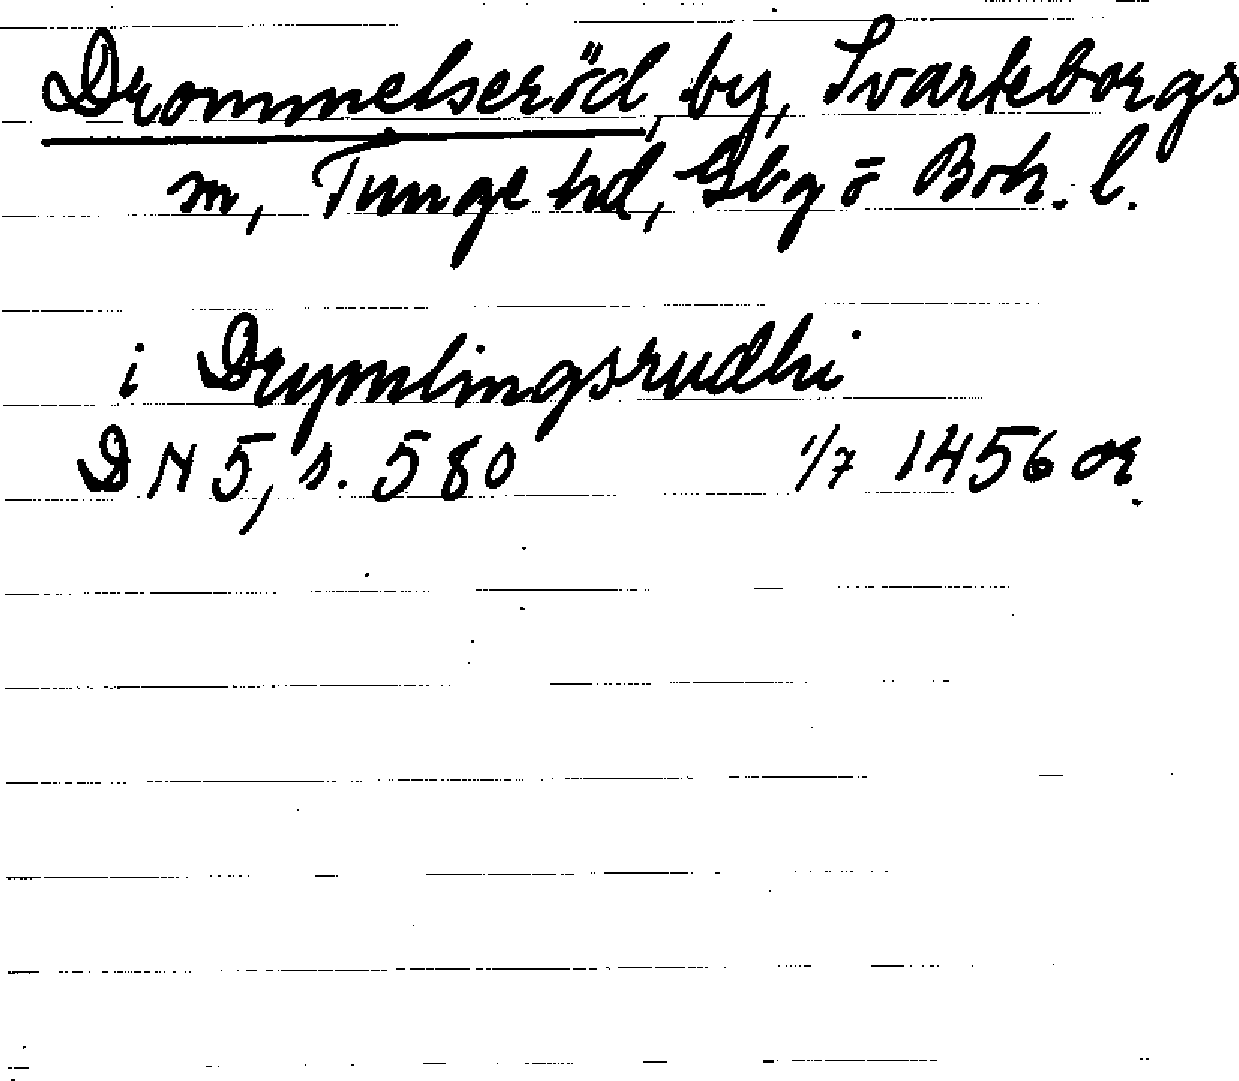 Drommelseröd, by, Svarteborgs
sn, Tunge hd, Gbg o Boh. l.
i Drymlingsrudhi
DN 5, s. 580 1/7 1456 or.